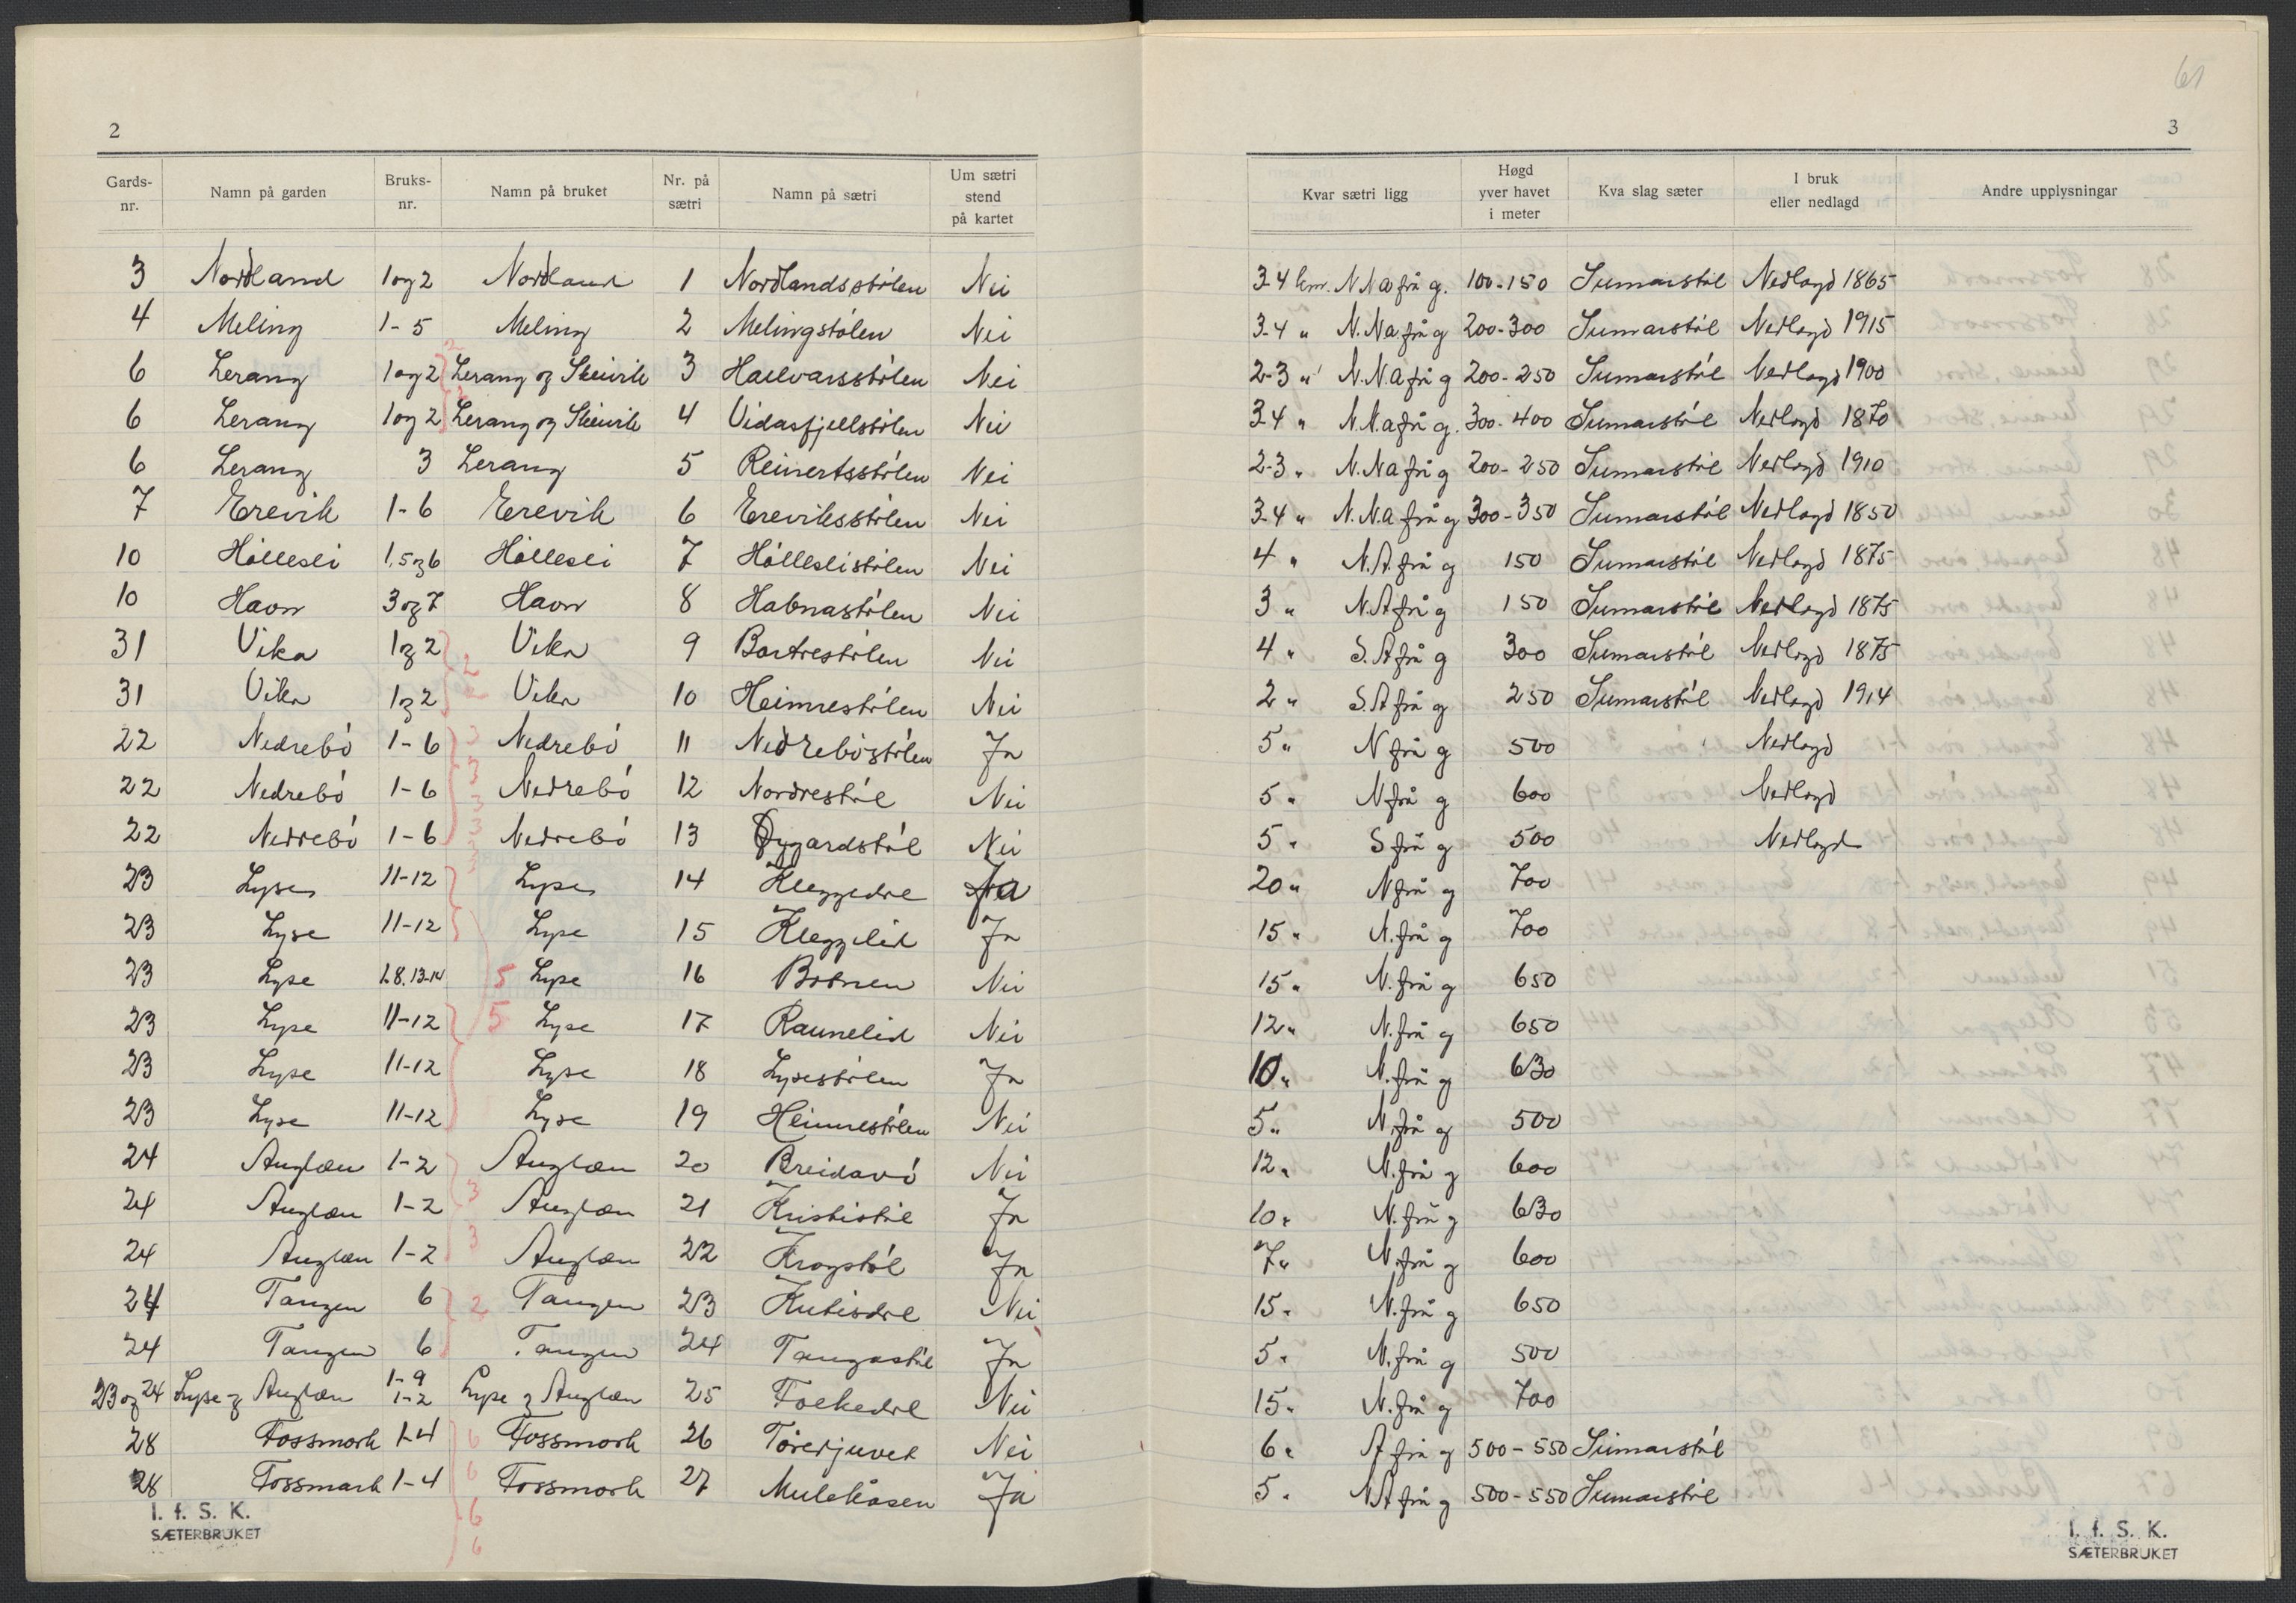 61
2
3
Gards-nr. Namn på garden Bruks-nr. Namn på bruket Nr. på sætri Namn på sætri Um sætri stend på kartet Kvar sætri ligg Høgd yver havet i meter Kva slag sæter I bruk eller nedlagd Andre upplysningar
3 Nordland 1 og 2 Nordland 1 Nordlandsstølen Nei 3-4 km. N.Na frå g. 100-150 Sumarstøl Nedlagd 1865
4 Meling 1-5 Meling 2 Melingstølen Nei 3-4 " N.Na frå g 200-300 Sumarstøl Nedlagd 1915
6 Lerang 1 og 2 Lerang og Skeivik 3 Hallvarsstølen Nei 2-3 " N.N.a frå g 200-250 Sumarstøl Nedlagd 1900
6 Lerang 1 og 2 Lerang og Skeivik 4 Vidasfjellstølen Nei 3-4 " N.N.a frå g. 300-400 Sumarstøl Nedlagd 1870
6 Lerang 3 Lerang 5 Reinertsstølen Nei 2-3 " N.Na frå g 200-250 Sumarstøl Nedlagd 1910
7 Erevik 1-6 Erevik 6 Ereviksstølen Nei 3-4 " N.N.a frå g 300-350 Sumarstøl Nedlagd 1850
10 Hólleslí 1,5 og 6 Hólleslí 7 Hólleslistølen Nei 4 " N.A. frå g 150 Sumarstøl Nedlagd 1875
10 Havn 3 og 7 Havn 8 Habnastølen Nei 3 " N.A frå g 150 Sumarstøl Nedlagd 1875
31 Vika 1 og 2 Vika 9 Bortrestølen Nei 4 " S.A frå g 300 Sumarstøl Nedlagd 1875
31 Vika 1 og 2 Vika 10 Heimrestølen Nei 2 " S.A frå g 250 Sumarstøl Nedlagd 1914
22 Nedrebó 1-6 Nedrebó 11 Nedrebóstølen Ja 5 " N frå g 500 Nedlagd
22 Nedrebó 1-6 Nedrebó 12 Nordrestøl Nei 5 " N frå g 600 Nedlagd
22 Nedrebó 1-6 Nedrebó 13 Øygardstøl Nei 5 " S frå g 500 Nedlagd
23 Lyse 11-12 Lyse 14 Kleggedre Ja 20 " N frå g 700
23 Lyse 11-12 Lyse 15 Kleggelid Ja 15 " N. frå g 700
23 Lyse 1.8.13-14 Lyse 16 Botnen Nei 15 " N. frå g 650
23 Lyse 11-12 Lyse 17 Raunelid Nei 12 " N. frå g 650
23 Lyse 11-12 Lyse 18 Lysestølen Ja 10 " N. frå g 630
23 Lyse 11-12 Lyse 19 Heimrestølen Nei 5 " N. frå g 500
24 Auglæn 1-2 Auglæn 20 Breidavó Nei 12 " N. frå g 600
24 Auglæn 1-2 Auglæn 21 Krististøl Ja 10 " N. frå g 630
24 Auglæn 1-2 Auglæn 22 Krogstøl Ja 7 " N. frå g 600
24 Tangen 6 Tangen 23 Kutisdre Nei 15 " N. frå g 650
24 Tangen 6 Tangen 24 Tangastøl Ja 5 " N. frå g 500
23 og 24 Lyse og Auglæn 1-9 1-2 Lyse og Auglæn 25 Folkedre Nei 15 " N. frå g 700
28 Fossmork 1-4 Fossmork 26 Tórerjuvet Nei 6 " A frå g 500-550 Sumarstøl
28 Fossmark 1-4 Fossmork 27 Mulekåsen Ja 5 " N.A frå g 500-550 Sumarstøl
I. f. S. K.
SÆTERBRUKET
I. f. S. K.
SÆTERBRUKET